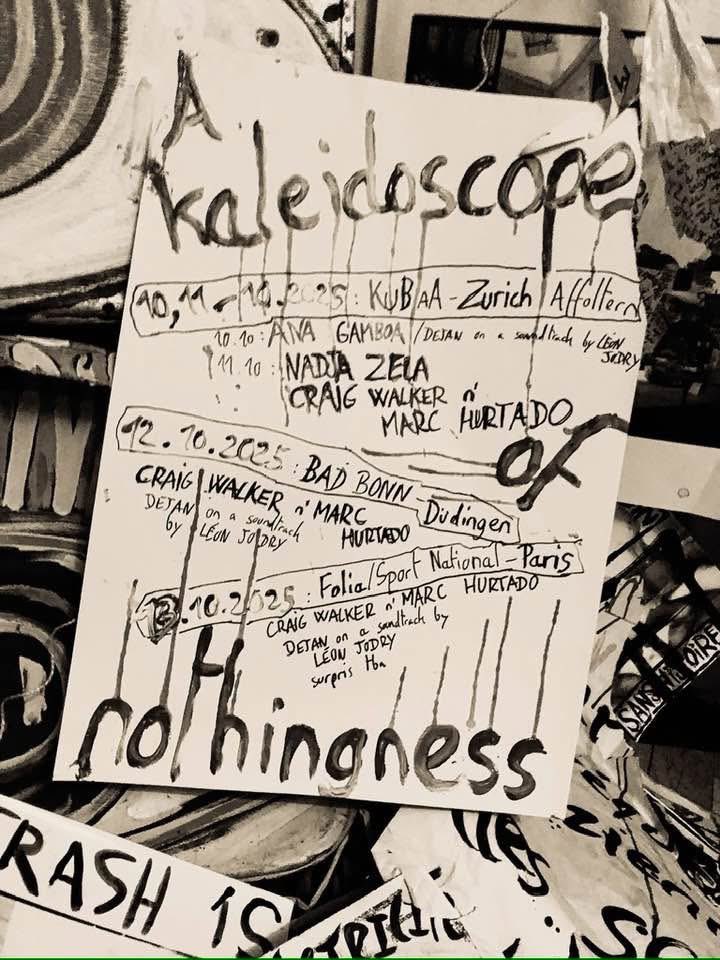 A
kaleidoscope
10,11 - 10.2025 : KUBAA - Zurich Affoltern
10.10 : ANA GAMBOA / DEJAN on a soundtrack by LÉON JODRY
11.10 : NADJA ZELA
CRAIG WALKER n' MARC HURTADO
of
12.10.2025 : BAD BONN Düdingen
CRAIG WALKER n' MARC HURTADO
DEJAN on a soundtrack by LÉON JODRY
13.10.2025 : Folia/Sport National - Paris
CRAIG WALKER n' MARC HURTADO
DEJAN on a soundtrack by
LÉON JODRY
surpris tba
nothingness
SANS
TRASH IS